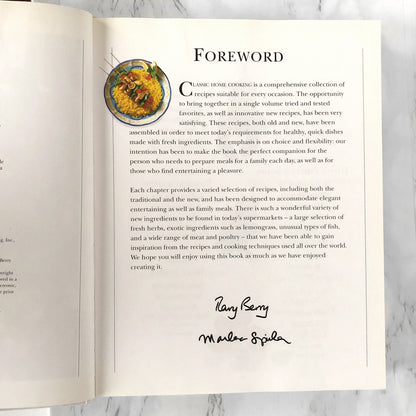 FOREWORD
CLASSIC HOME COOKING is a comprehensive collection of
recipes suitable for every occasion. The opportunity
to bring together in a single volume tried and tested
favorites, as well as innovative new recipes, has been very
satisfying. These recipes, both old and new, have been
assembled in order to meet today's requirements for healthy, quick dishes
made with fresh ingredients. The emphasis is on choice and flexibility: our
intention has been to make the book the perfect companion for the
person who needs to prepare meals for a family each day, as well as for
those who find entertaining a pleasure.
Each chapter provides a varied selection of recipes, including both the
traditional and the new, and has been designed to accommodate elegant
entertaining as well as family meals. There is such a wonderful variety of
new ingredients to be found in today's supermarkets – a large selection of
fresh herbs, exotic ingredients such as lemongrass, unusual types of fish,
and a wide range of meat and poultry – that we have been able to gain
inspiration from the recipes and cooking techniques used all over the world.
We hope you will enjoy using this book as much as we have enjoyed
creating it.
Mary Berry
Marlena Spieler
Inc.
Berry